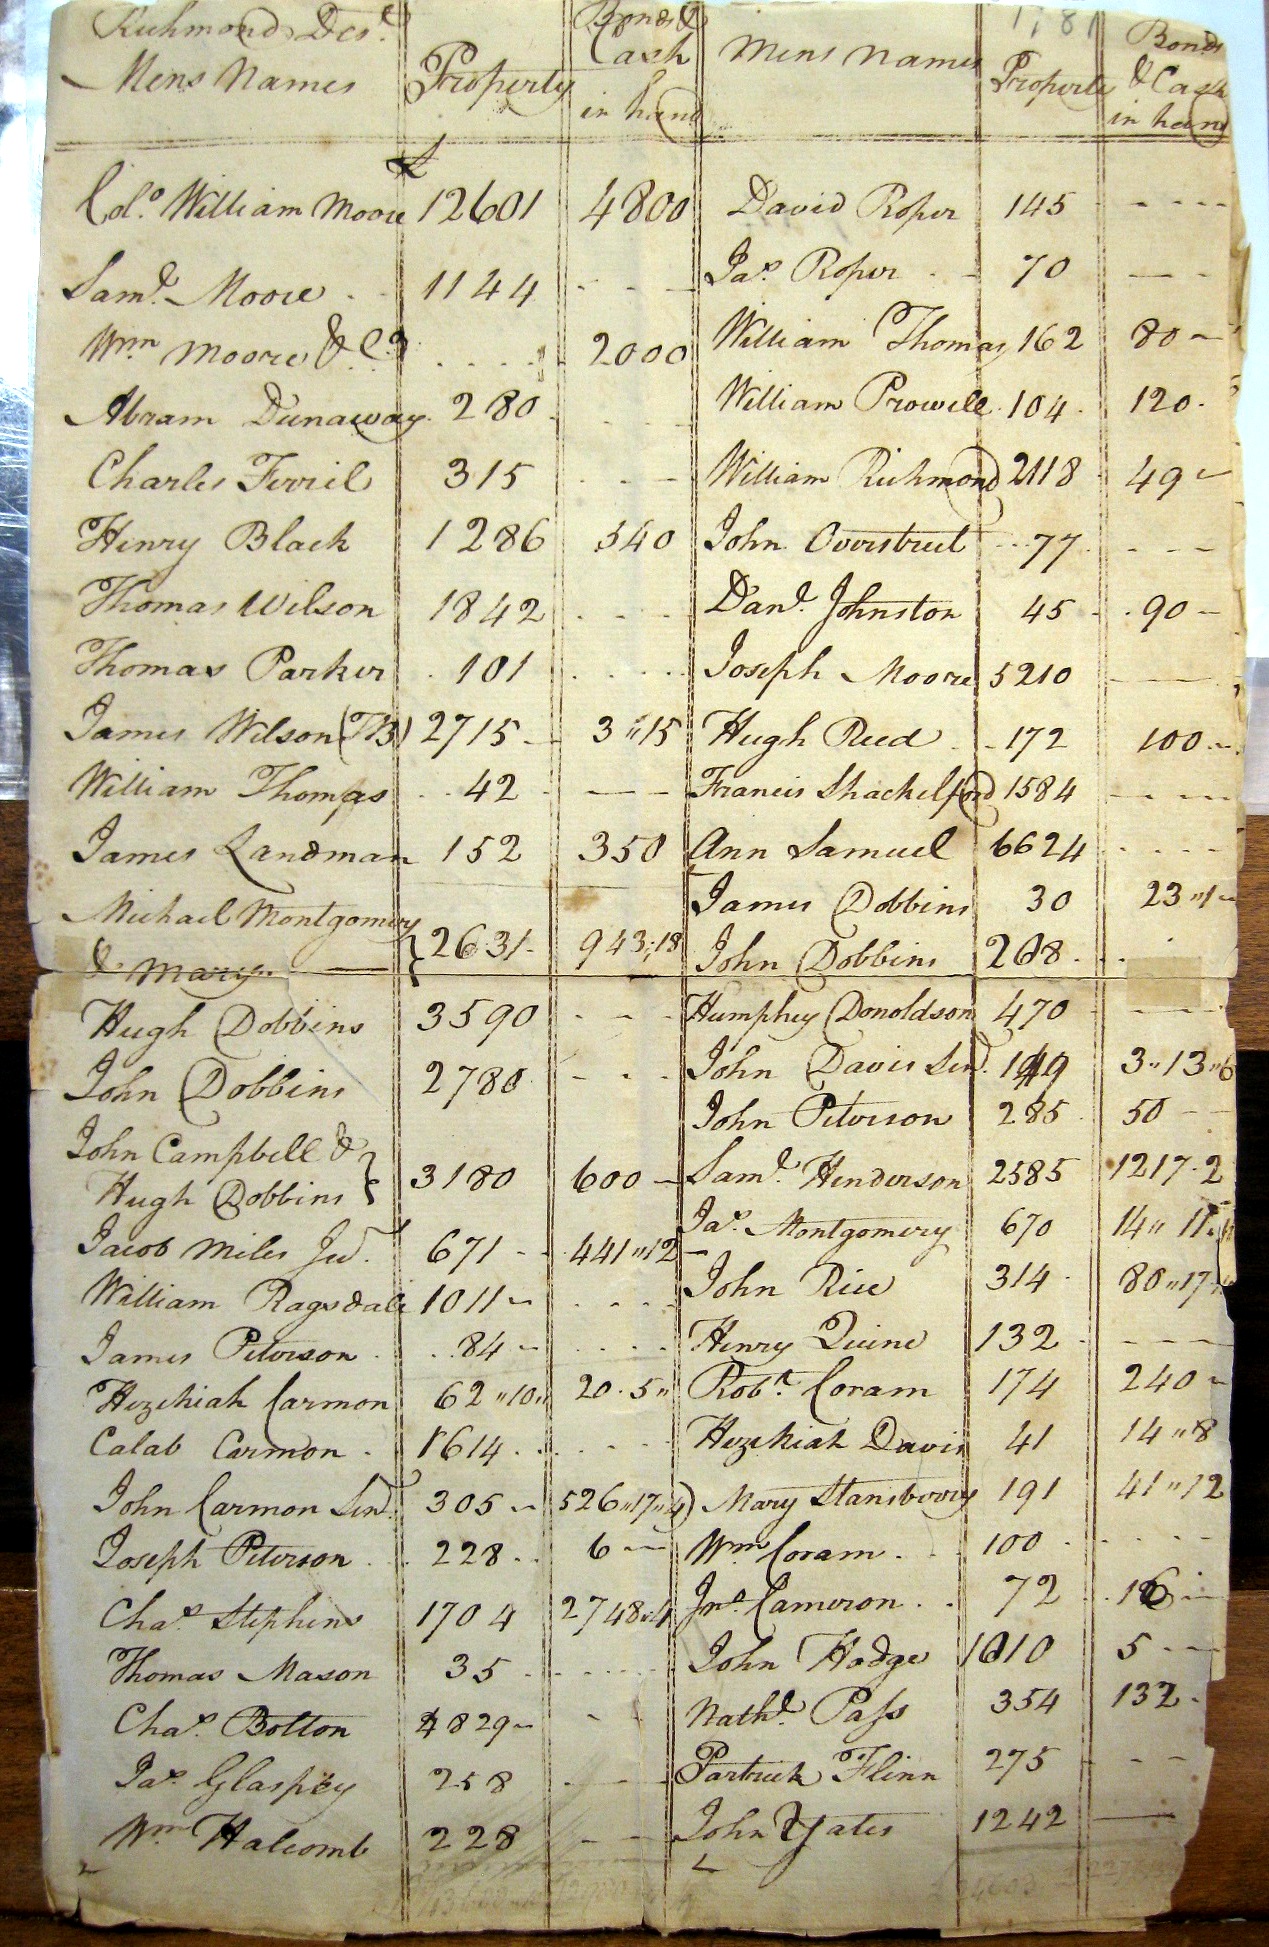 Richmond Dest.
Mens Names
Property
Bonds &
Cash
in hand
£
Colo. William Moore 12601 4800
Saml. Moore 1144 - - -
Wm Moore & Co. 2000
Abram Dunaway 280
Charles Ferril 315 - - -
Henry Black 1286 540
Thomas Wilson 1842 - - -
Thomas Parker 101
James Wilson (TB) 2715 3"15
William Thomas 42 - - -
James Landman 152 350
Michael Montgomery
& Mary } 2631 943"18
Hugh Dobbins 3590 - - -
John Dobbins 2780 - - -
John Campbell &
Hugh Dobbins } 3180 600
Jacob Miles Jur. 671 441"12
William Ragsdale 1011
James Peterson 84
Hezekiah Carmon 62"10" 20.5"
Calab Carmon 1614
John Carmon Senr. 305 526"17"4
Joseph Peterson 228 6
Chas. Stephens 1704 2748"4
Thomas Mason 35
Chas. Bolton 4829
Jas. Glaspey 258
Wm Halcomb 228
1781
Mens Names
Property
Bonds
& Cash
in hand
David Roper 145 - - - -
Jas. Roper 70
William Thomas 162 80
William Prowell 104 120
William Richmond 2118 49
John Overstreet 77 - - -
Danl. Johnston 45 90
Joseph Moore 5210
Hugh Reed 172 100
Francis Shackelford 1584
Ann Samuel 6624
James Dobbins 30 23"1
John Dobbins 268
Humphey Donoldson 470
John Davis Senr. 149 3"13"6
John Peterson 285 50
Saml. Henderson 2585 1217.2
Jas. Montgomery 670 14"11"
John Rice 314 80"17
Henry Quine 132
Robt. Coram 174 240
Hezekiah Davis 41 14"8
Mary Stansberry 191 41"12
Wm Coram 100
Jno. Cameron 72
John Hodge 1010 5
Nathl. Pass 354 132
Partrick Flinn 275
John Yates 1242